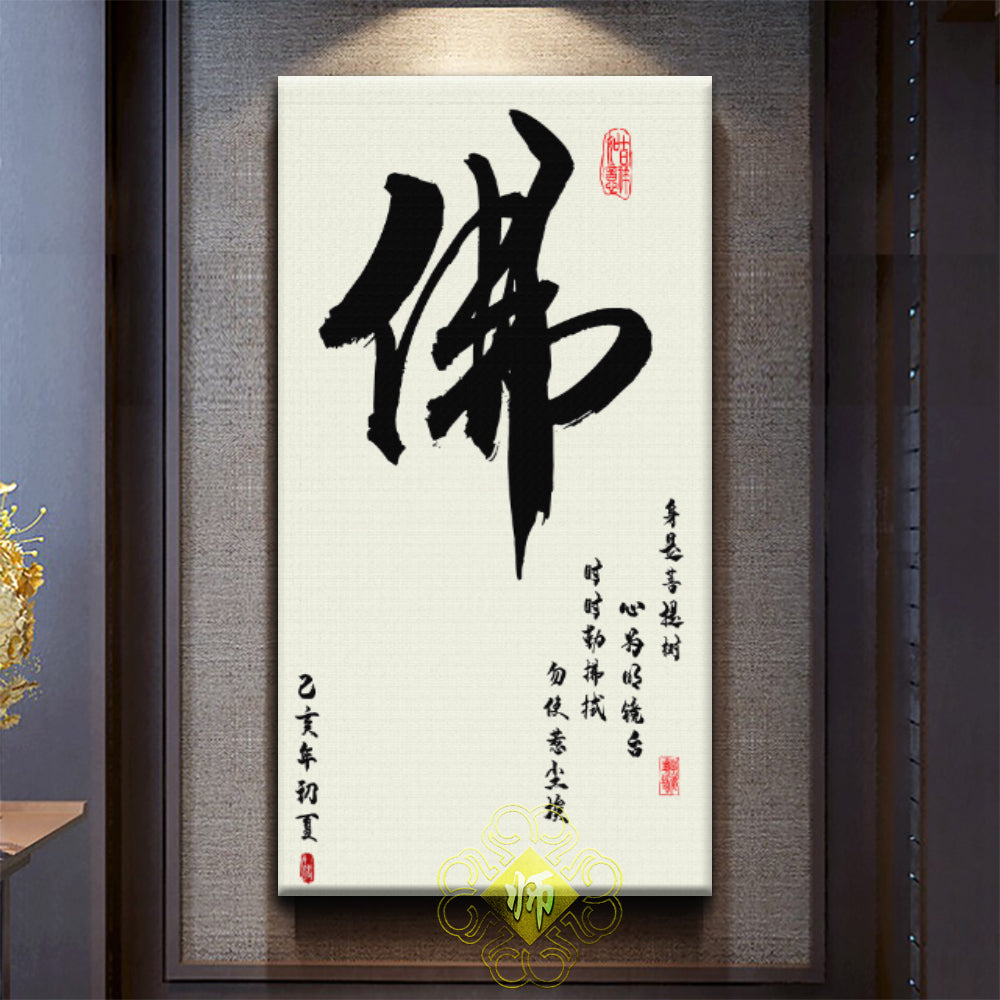 佛
吉祥如意
身是菩提树
心为明镜台
时时勤拂拭
勿使惹尘埃
乙亥年初夏
师